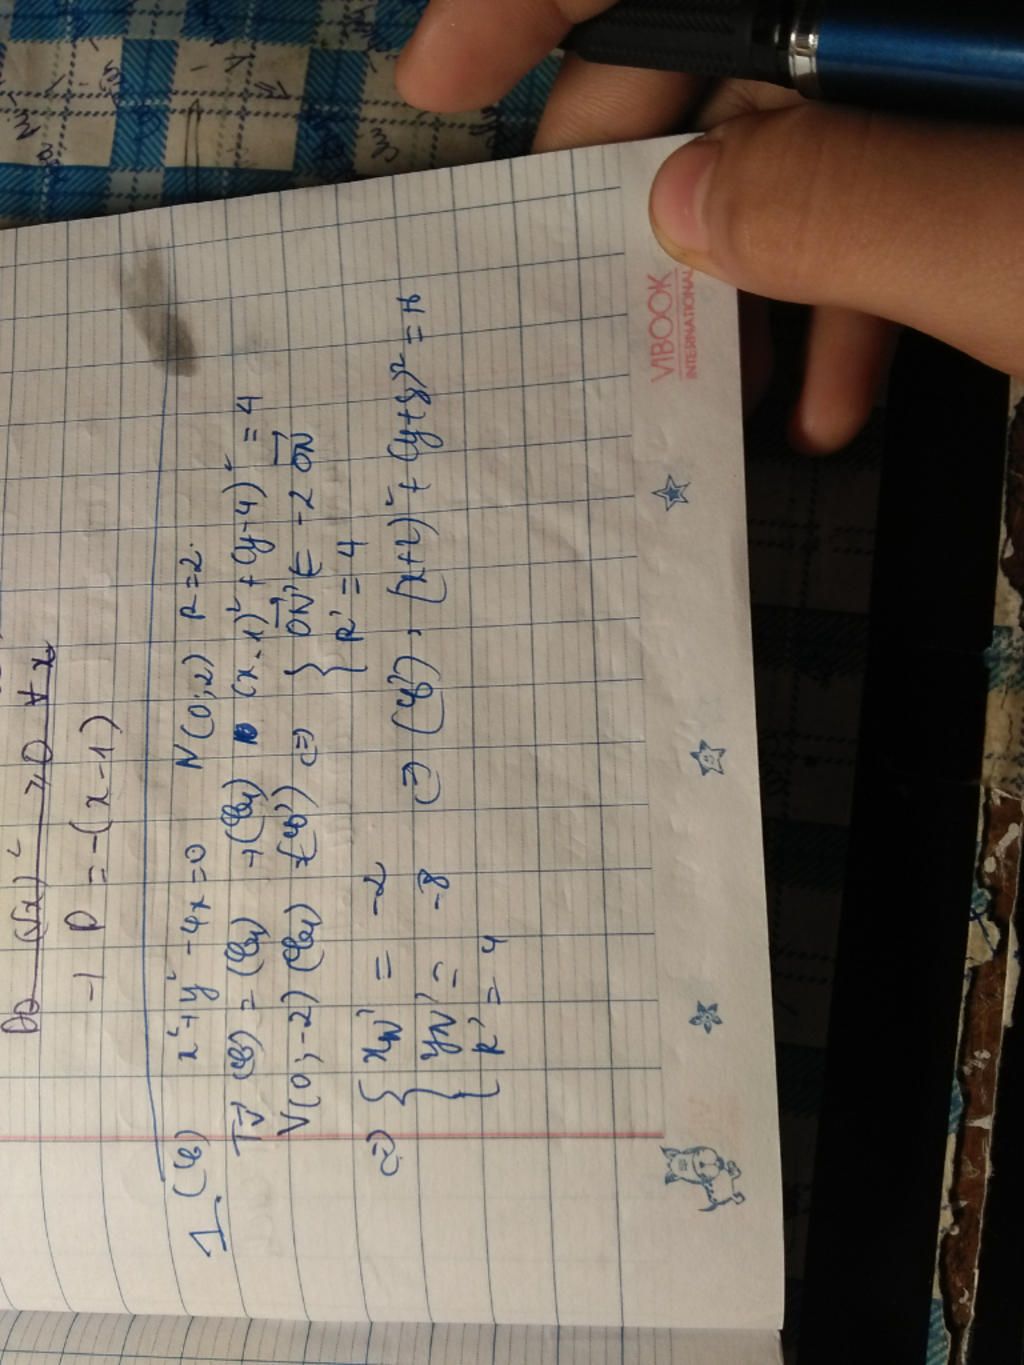 Do (√x)² ≥ 0 ∀ x
→ P = -(x-1)
1. (C) x²+y²-4x=0 N(0;2) R=2.
T_v⃗ (C) = (C₁) → (C₁) (x-1)²+(y-4)² = 4
V(0;-2) (C₁) = (C') ⇔ { ON⃗' = -2 ON⃗
R' = 4
⇔ { x_N' = -2
y_N' = -8 ⇔ (C'): (x+4)²+(y+8)² = 16
R' = 4
VIBOOK
INTERNATIONAL